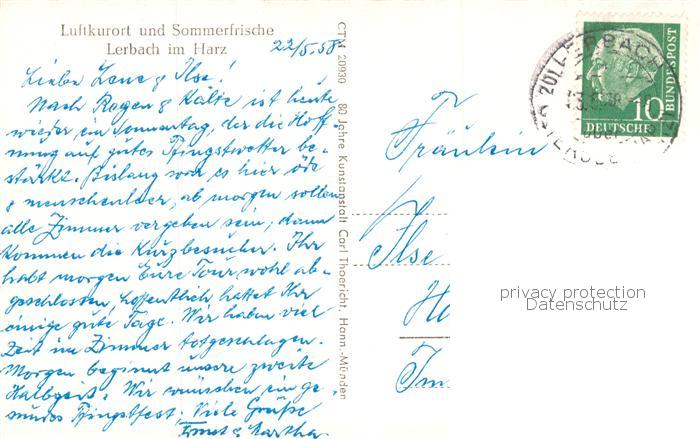 Luftkurort und Sommerfrische
Lerbach im Harz
22/5.58
Liebe Lene & Ilse!
Nach Regen & Kälte ist heute
wieder ein Sonnentag, der die Hoff-
nung auf gutes Pfingstwetter be-
stärkt. Bislang war es hier öde
& menschenleer, ab morgen sollen
alle Zimmer vergeben sein; dann
kommen die Kurzbesucher. Ihr
habt morgen Eure Tour wohl ab-
geschlossen, hoffentlich hattet Ihr
einige gute Tage. Wir haben viel
Zeit im Zimmer totgeschlagen.
Morgen beginnt unsere zweite
Halbzeit. Wir wünschen ein ge-
sundes Pfingstfest, Viele Grüße
Ernst & Martha
CTH 20930 80 Jahre Kunstanstalt Carl Thoericht, Hann.-Münden
Fräulein
Ilse
DEUTSCHE
BUNDESPOST
10
privacy protection
Datenschutz